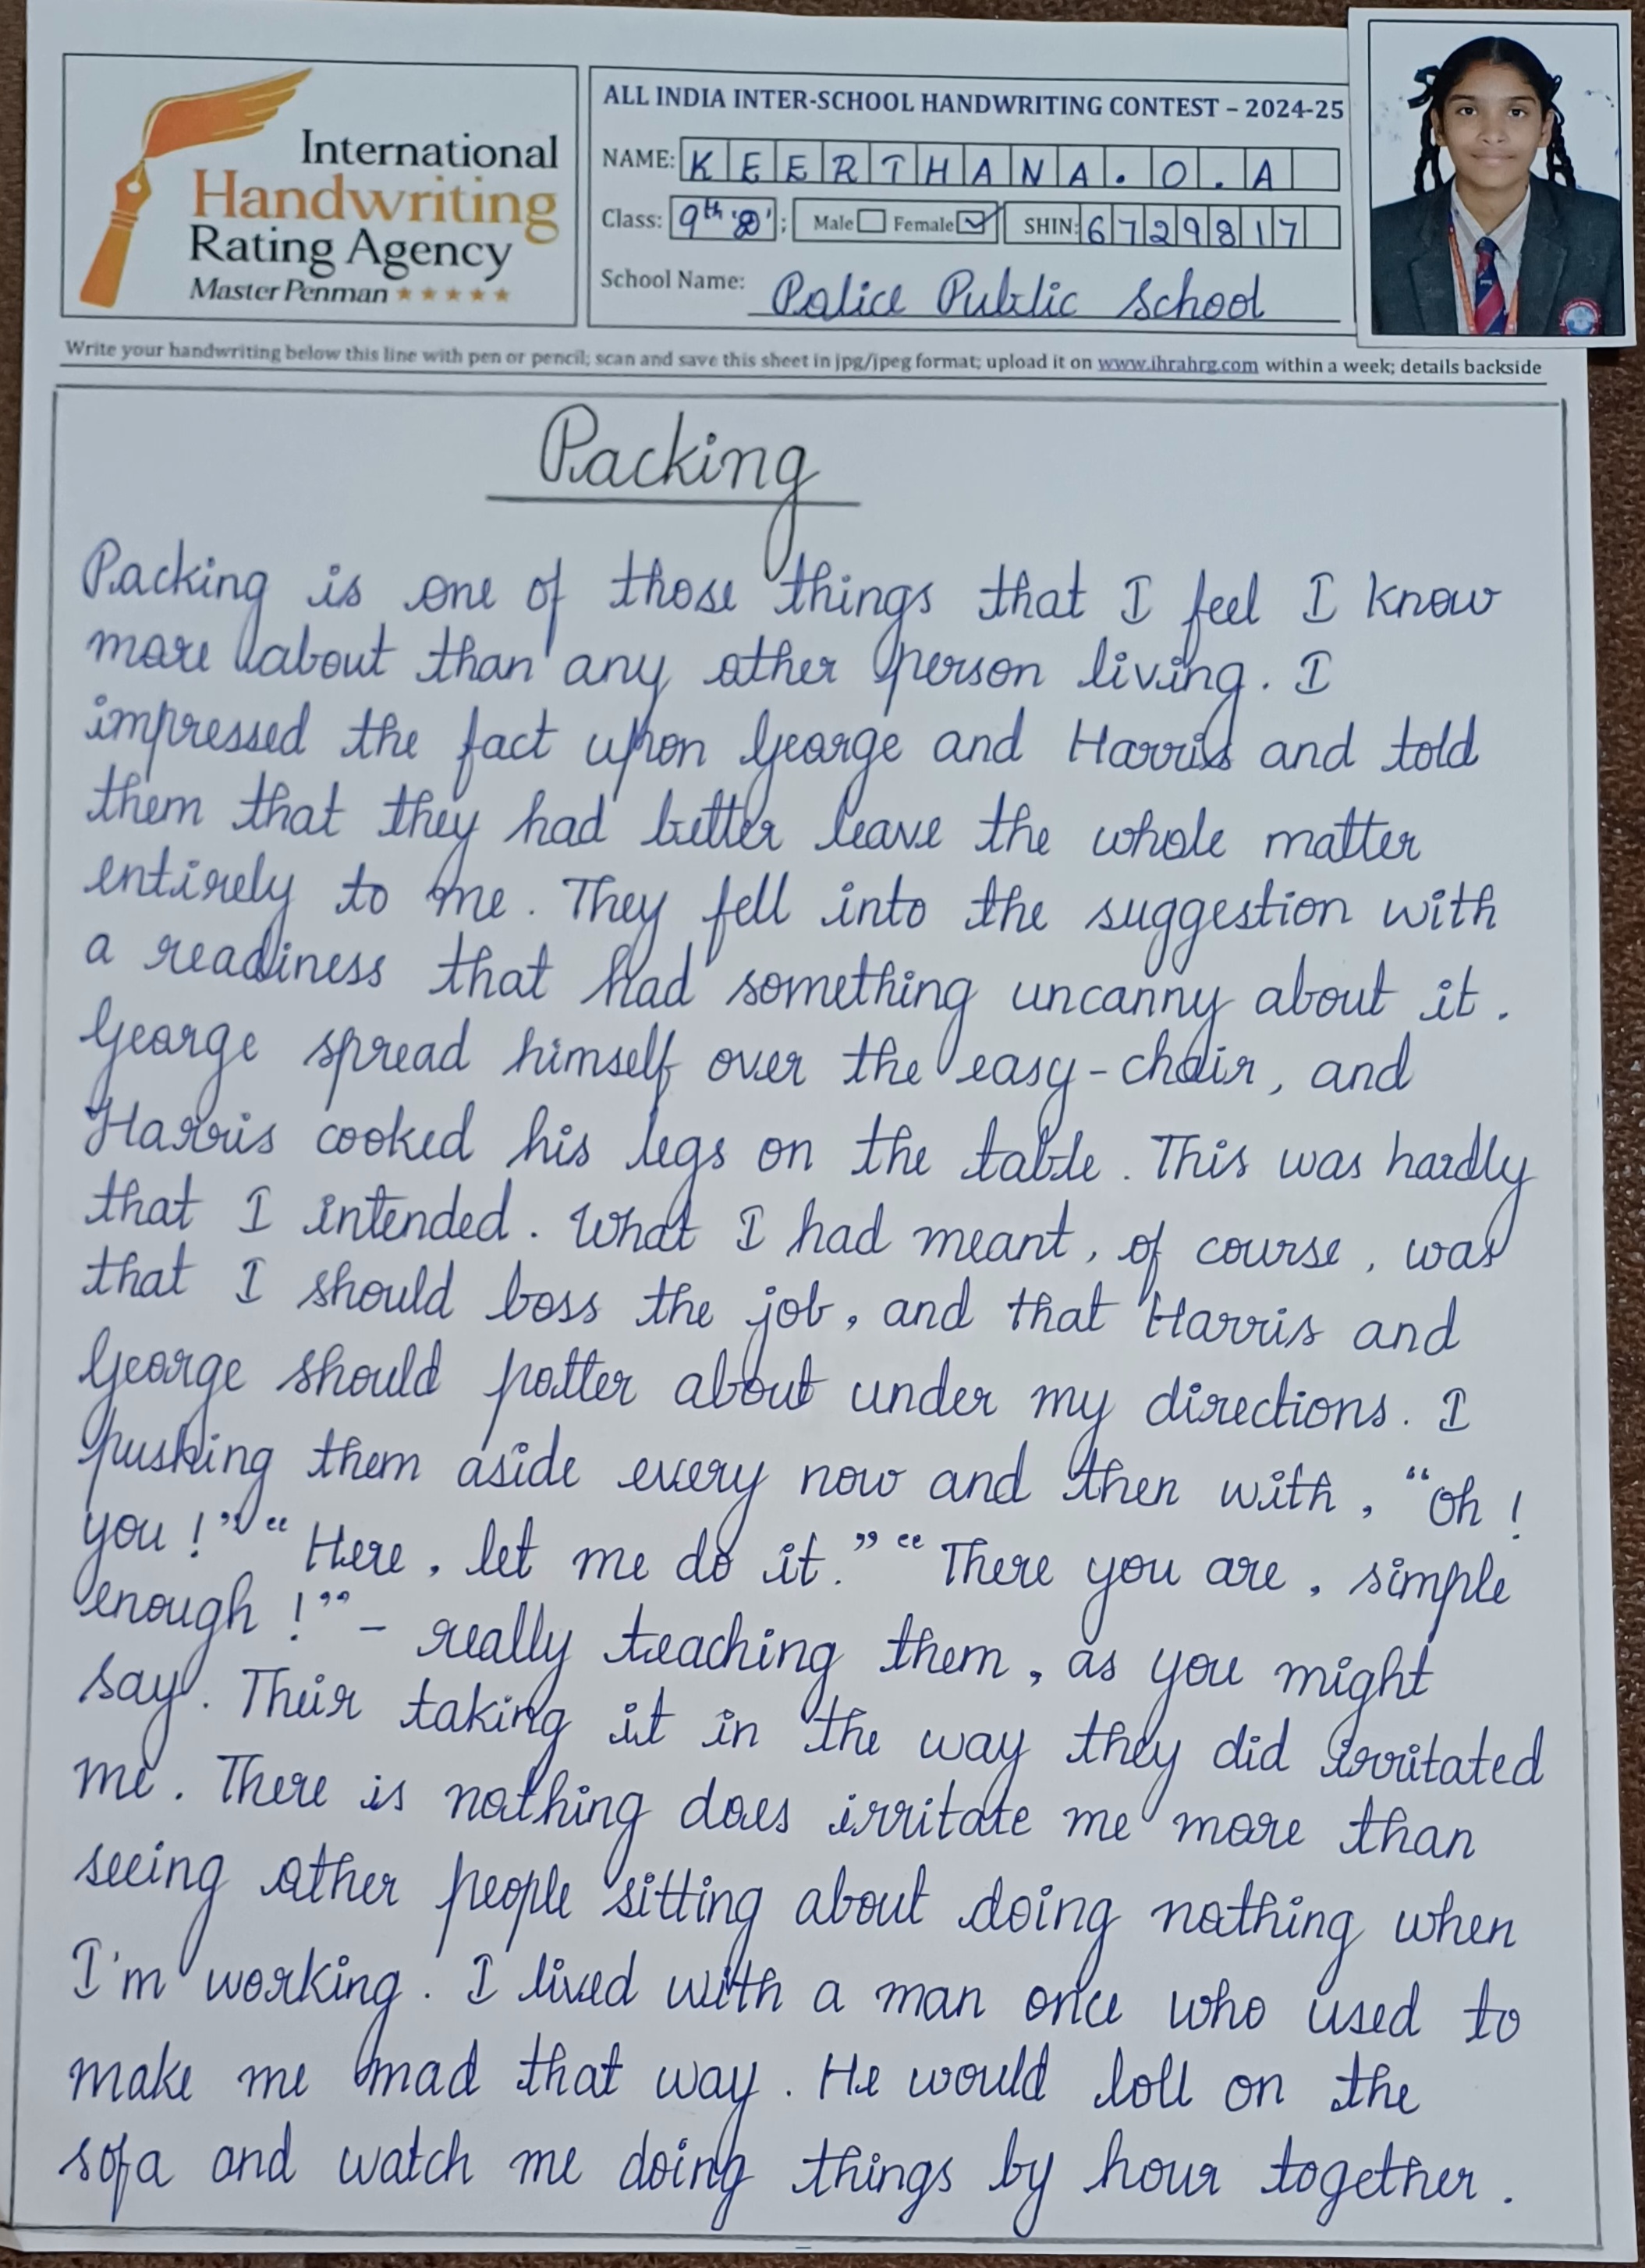 International
Handwriting
Rating Agency
Master Penman
ALL INDIA INTER-SCHOOL HANDWRITING CONTEST – 2024-25
NAME: KEERTHANA.O.A
Class: 9th 'B'; Male Female ✓ SHIN: 6729817
School Name: Police Public School
Write your handwriting below this line with pen or pencil; scan and save this sheet in jpg/jpeg format; upload it on www.ihrahrg.com within a week; details backside
Packing
Packing is one of those things that I feel I know
more about than any other person living. I
impressed the fact upon George and Harris and told
them that they had better leave the whole matter
entirely to me. They fell into the suggestion with
a readiness that had something uncanny about it.
George spread himself over the easy-chair, and
Harris cooked his legs on the table. This was hardly
that I intended. What I had meant, of course, was
that I should boss the job, and that Harris and
George should potter about under my directions. I
pushing them aside every now and then with, "Oh!
you!" "Here, let me do it." "There you are, simple
enough!" – really teaching them, as you might
say. Their taking it in the way they did irritated
me. There is nothing does irritate me more than
seeing other people sitting about doing nothing when
I'm working. I lived with a man once who used to
make me mad that way. He would loll on the
sofa and watch me doing things by hour together.